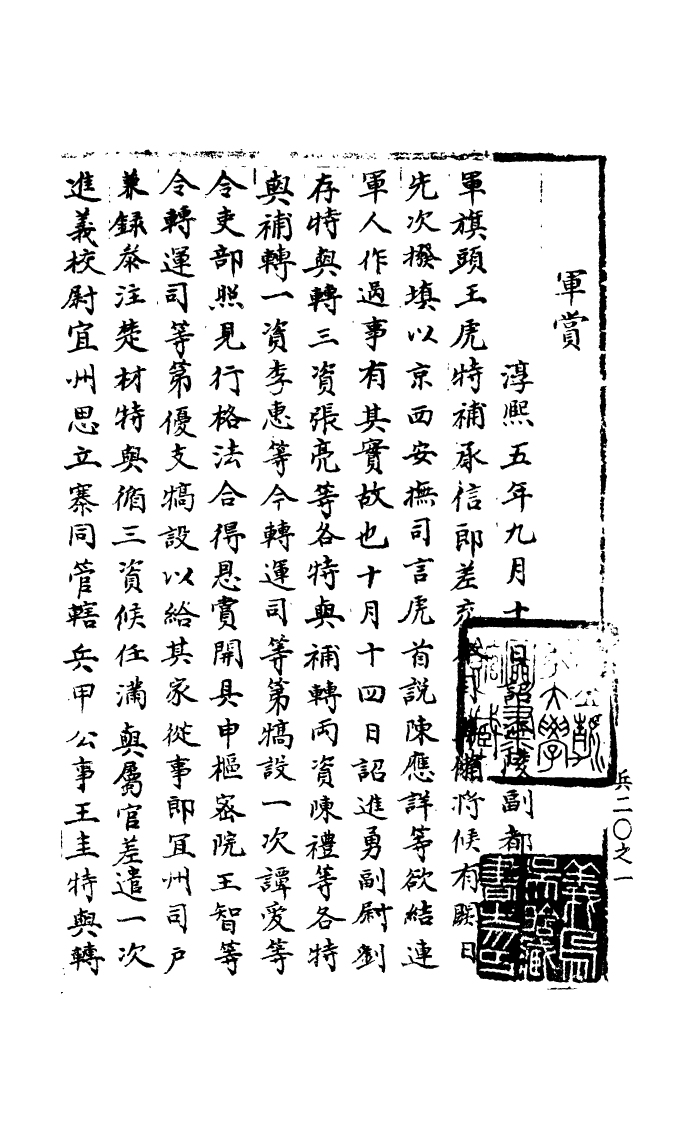 軍賞
淳熙五年九月十日詔江陵副都
軍旗頭王虎特補承信郎差充將候有闕日
先次撥填以京西安撫司言虎首說陳應詳等欲結連
軍人作過事有其實故也十月十四日詔進勇副尉劉
存特與轉三資張亮等各特與補轉两資陳禮等各特
與補轉一資李惠等令轉運司等第犒設一次譚愛等
令吏部照見行格法合得恩賞開具申樞宻院王智等
令轉運司等第優支犒設以給其家從事郎宜州司戶
兼録叅注楚材特與循三資候任滿與屬官差遣一次
進義校尉宜州思立寨同管轄兵甲公事王圭特與轉
兵二〇之一